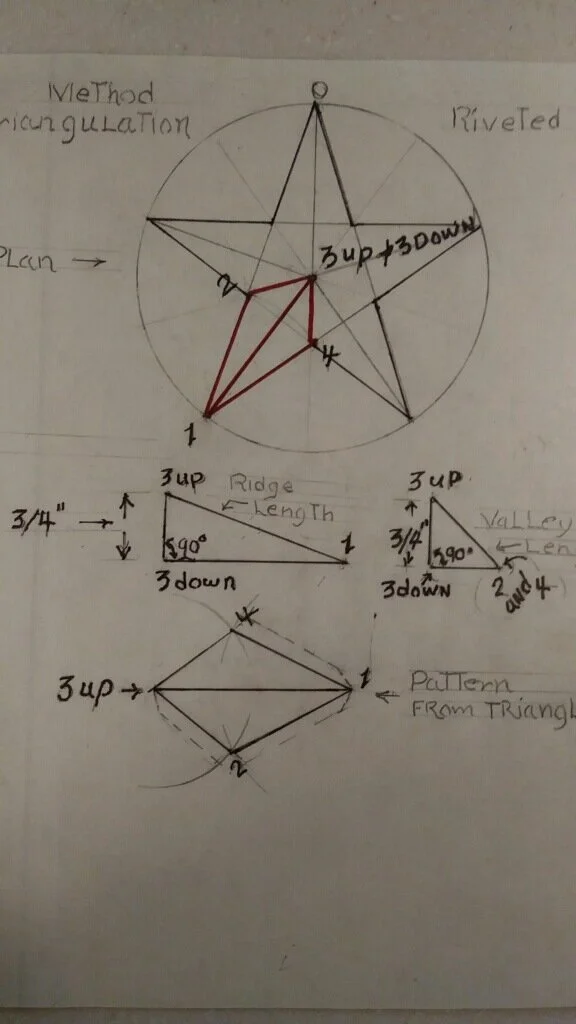 O
Method
riangulation
Riveted
3 up + 3 Down
PLan →
2
4
1
3 up
Ridge
Length
3/4" →
90°
1
3 down
3 up
3/4"
Valley
Len
90°
3 down
2
and 4
4
3 up →
1
← Pattern
From Triangl
2